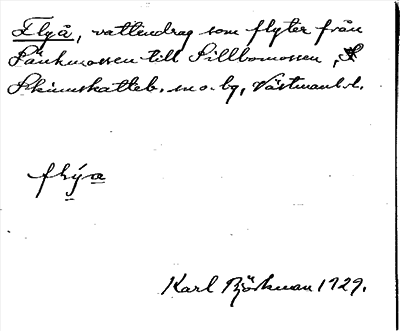 Flyå, vattendrag som flyter från
Pänkmossen till Sillbomossen, S
Skinnskatteb. sn o. bg, Västmanl. l.
flýa
Karl Björkman 1929.